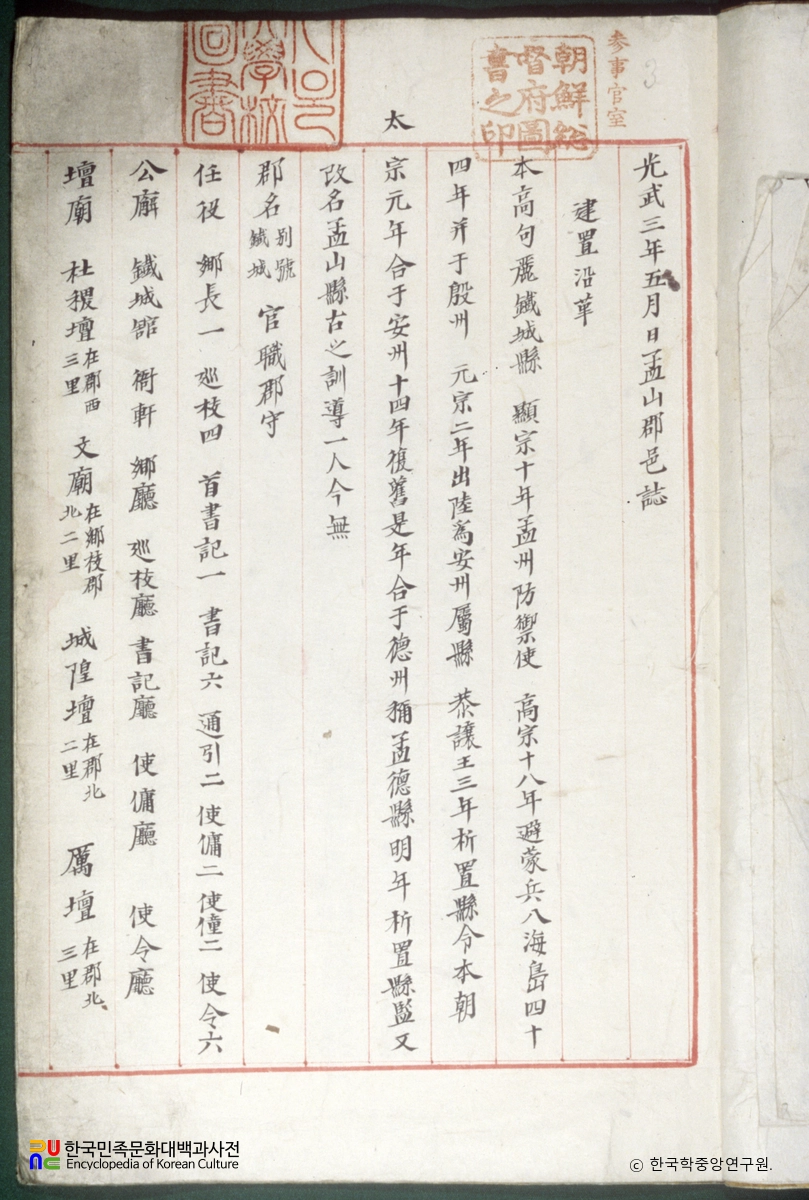 參事官室
朝鮮總督府圖書之印
光武三年五月日孟山郡邑誌
建置沿革
本高句麗鐵城縣 顯宗十年孟州防禦使 高宗十八年避蒙兵入海島四十
四年并于殷州 元宗二年出陸爲安州屬縣 恭讓王三年析置縣令本朝
太
宗元年合于安州十四年復舊是年合于德州稱孟德縣明年析置縣監又
改名孟山縣古之訓導一人今無
郡名 别號鐵城 官職郡守
任役 鄉長一 巡校四 首書記一 書記六 通引二 使傭二 使僮二 使令六
公廨 鐵城舘 衙軒 鄉廳 巡校廳 書記廳 使傭廳 使令廳
壇廟 社稷壇 在郡西三里 文廟 在鄉校郡北二里 城隍壇 在郡北二里 厲壇 在郡北三里
한국민족문화대백과사전
Encyclopedia of Korean Culture
© 한국학중앙연구원.